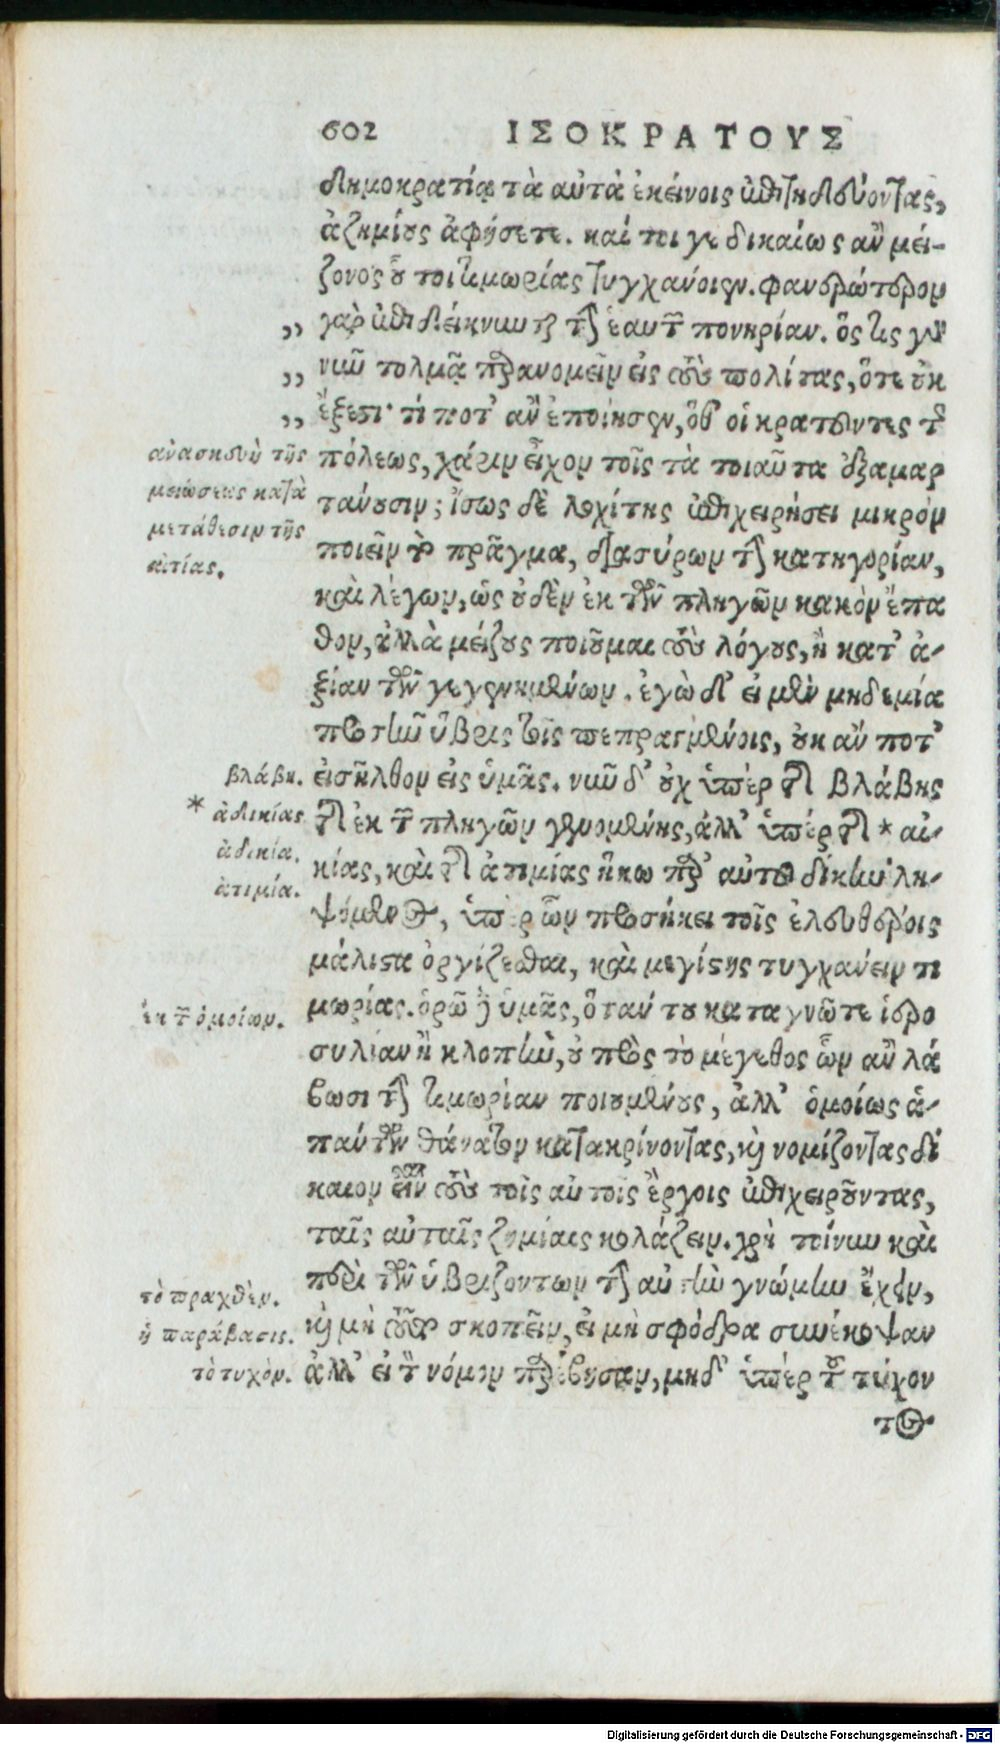 602 ΙΣΟΚΡΑΤΟΥΣ
δημοκρατία τὰ αὐτὰ ἐκείνοις ἐπιτηδεύοντας,
ἀζημίους ἀφήσετε. καί τοι γε δικαίως ἂν μεί-
ζονος ὅ τοι τιμωρίας τυγχάνοιεν. φανερώτερον
,, γὰρ ἐπιδείκνυνται τὴν ἑαυτῶν πονηρίαν. ὅς τις γὰρ
,, νῦν τολμᾷ παρανομεῖν εἰς τοὺς πολίτας, ὅτε οὐκ
,, ἔξεστι· τί ποτ' ἂν ἐποίησεν, ὅθ' οἱ κρατοῦντες τῆς
ἀνασκευὴ τῆς
μειώσεως κατὰ
μετάθεσιν τῆς
αἰτίας.
πόλεως, χάριν εἶχον τοῖς τὰ τοιαῦτα ἐξαμαρ
τάνουσιν; ἴσως δὲ λοχίτης ἐπιχειρήσει μικρὸν
ποιεῖν τὸ πρᾶγμα, διασύρων τὴν κατηγορίαν,
καὶ λέγων, ὡς οὐδὲν ἐκ τῶν πληγῶν κακὸν ἔπα
θον, ἀλλὰ μείζους ποιοῦμαι τοὺς λόγους, ἢ κατ' ἀ-
ξίαν τῶν γεγενημένων. ἐγὼ δ' εἰ μὲν μηδεμία
προσῆν ὕβρις τοῖς πεπραγμένοις, οὐκ ἄν ποτ'
βλάβη. εἰσῆλθον εἰς ὑμᾶς. νῦν δ' οὐχ ὑπὲρ τῆς βλάβης
* ἀδικίας τῆς ἐκ τῶν πληγῶν γενομένης, ἀλλ' ὑπὲρ τῆς * αἰ-
ἀδικία.
ἀτιμία. κίας, καὶ τῆς ἀτιμίας ἥκω παρ' αὐτοῦ δίκην λη-
ψόμενος, ὑπὲρ ὧν προσήκει τοῖς ἐλευθέροις
μάλιστα ὀργίζεσθαι, καὶ μεγίστης τυγχάνειν τι
ἐκ τῶν ὁμοίων. μωρίας. ὁρῶ δὲ ὑμᾶς, ὅταν του καταγνῶτε ἱερο
συλίαν ἢ κλοπὴν, οὐ πρὸς τὸ μέγεθος ὧν ἂν λά
βωσι τὴν τιμωρίαν ποιουμένους, ἀλλ' ὁμοίως ἁ-
πάντων θάνατον κατακρίνοντας, καὶ νομίζοντας δί
καιον εἶναι τοὺς τοῖς αὐτοῖς ἔργοις ἐπιχειροῦντας,
ταῖς αὐταῖς ζημίαις κολάζειν. χρὴ τοίνυν καὶ
τὸ πραχθὲν. περὶ τῶν ὑβριζόντων τὴν αὐτὴν γνώμην ἔχειν,
ἡ παράβασις. καὶ μὴ τοῦτο σκοπεῖν, εἰ μὴ σφόδρα συνέκοψαν
τὸ τυχὸν. ἀλλ' εἰ τὸν νόμον παρέβησαν, μηδ' ὑπὲρ τοῦ τύχον
τος